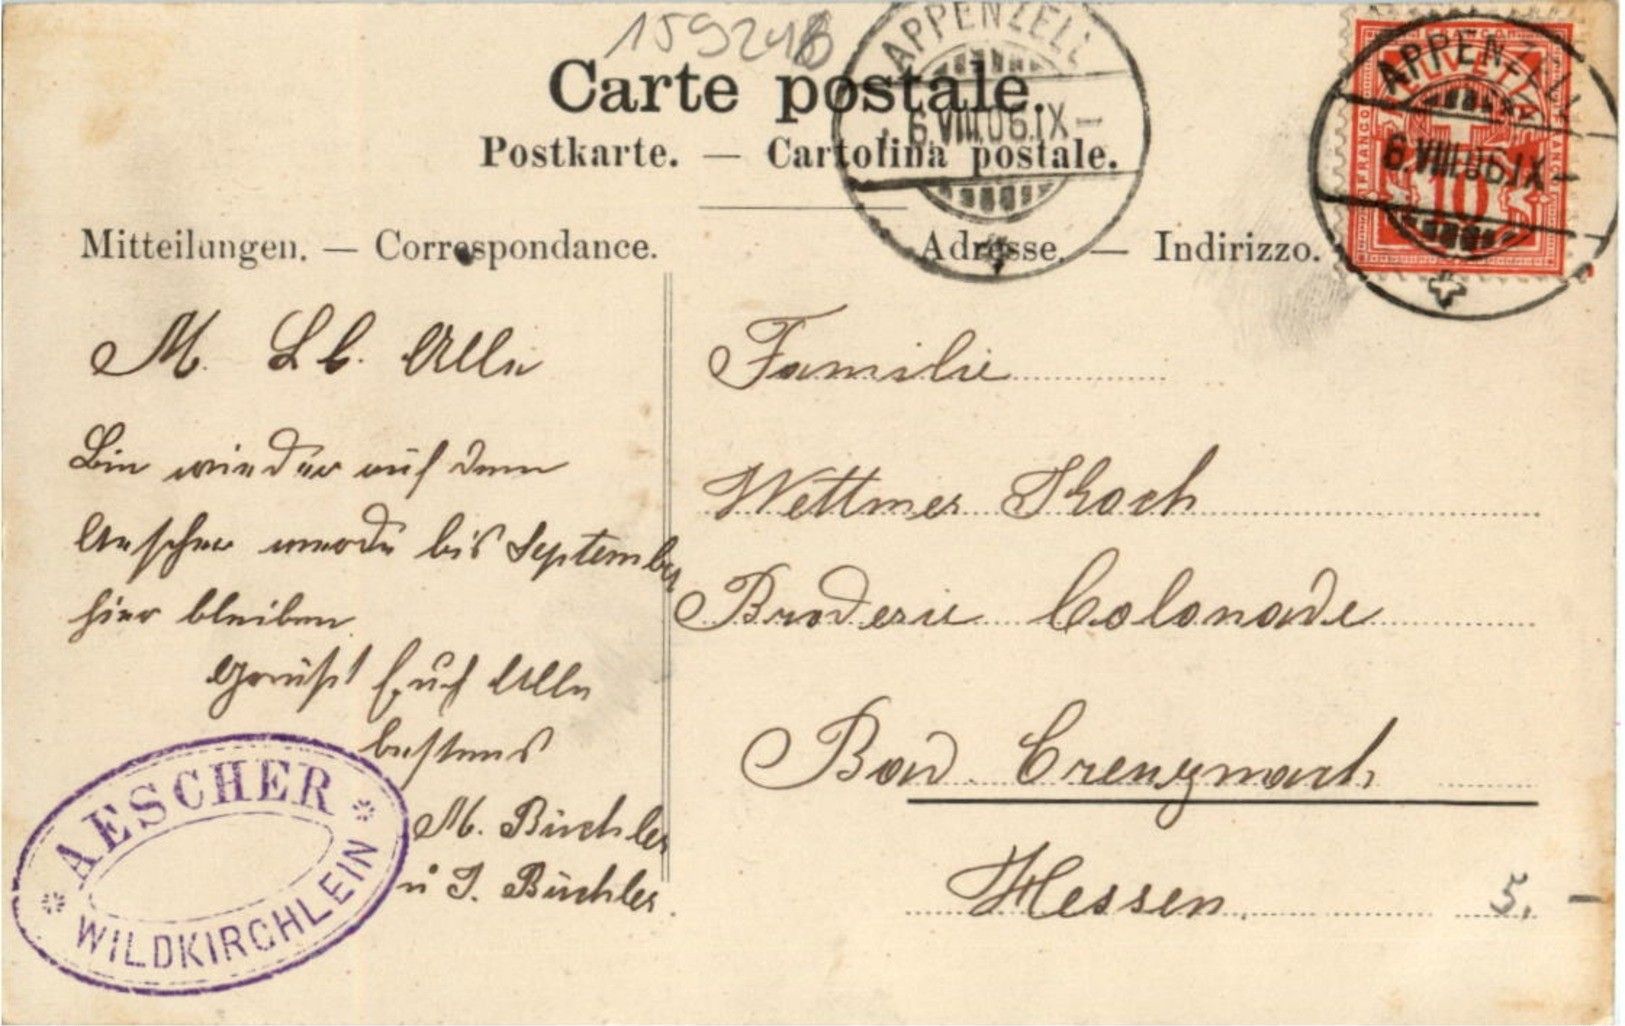 159248
Carte postale.
Postkarte. — Cartolina postale.
Mitteilungen. — Correspondance.
Adresse. — Indirizzo.
APPENZELL
6.VIII.06.IX–
APPENZELL
6.VIII.06.IX–
HELVETIA
FRANCO
FRANCO
10
M. Lb. Alle
Bin wieder auf dem
Aescher werde bis September
hier bleiben
Grüßt Euch Alle
bestens
M. Büchler
u J. Büchler.
Familie
Wettmer Koch
Broderie Colonade
Bad Creuznach
Hessen.
5. –
AESCHER
WILDKIRCHLEIN